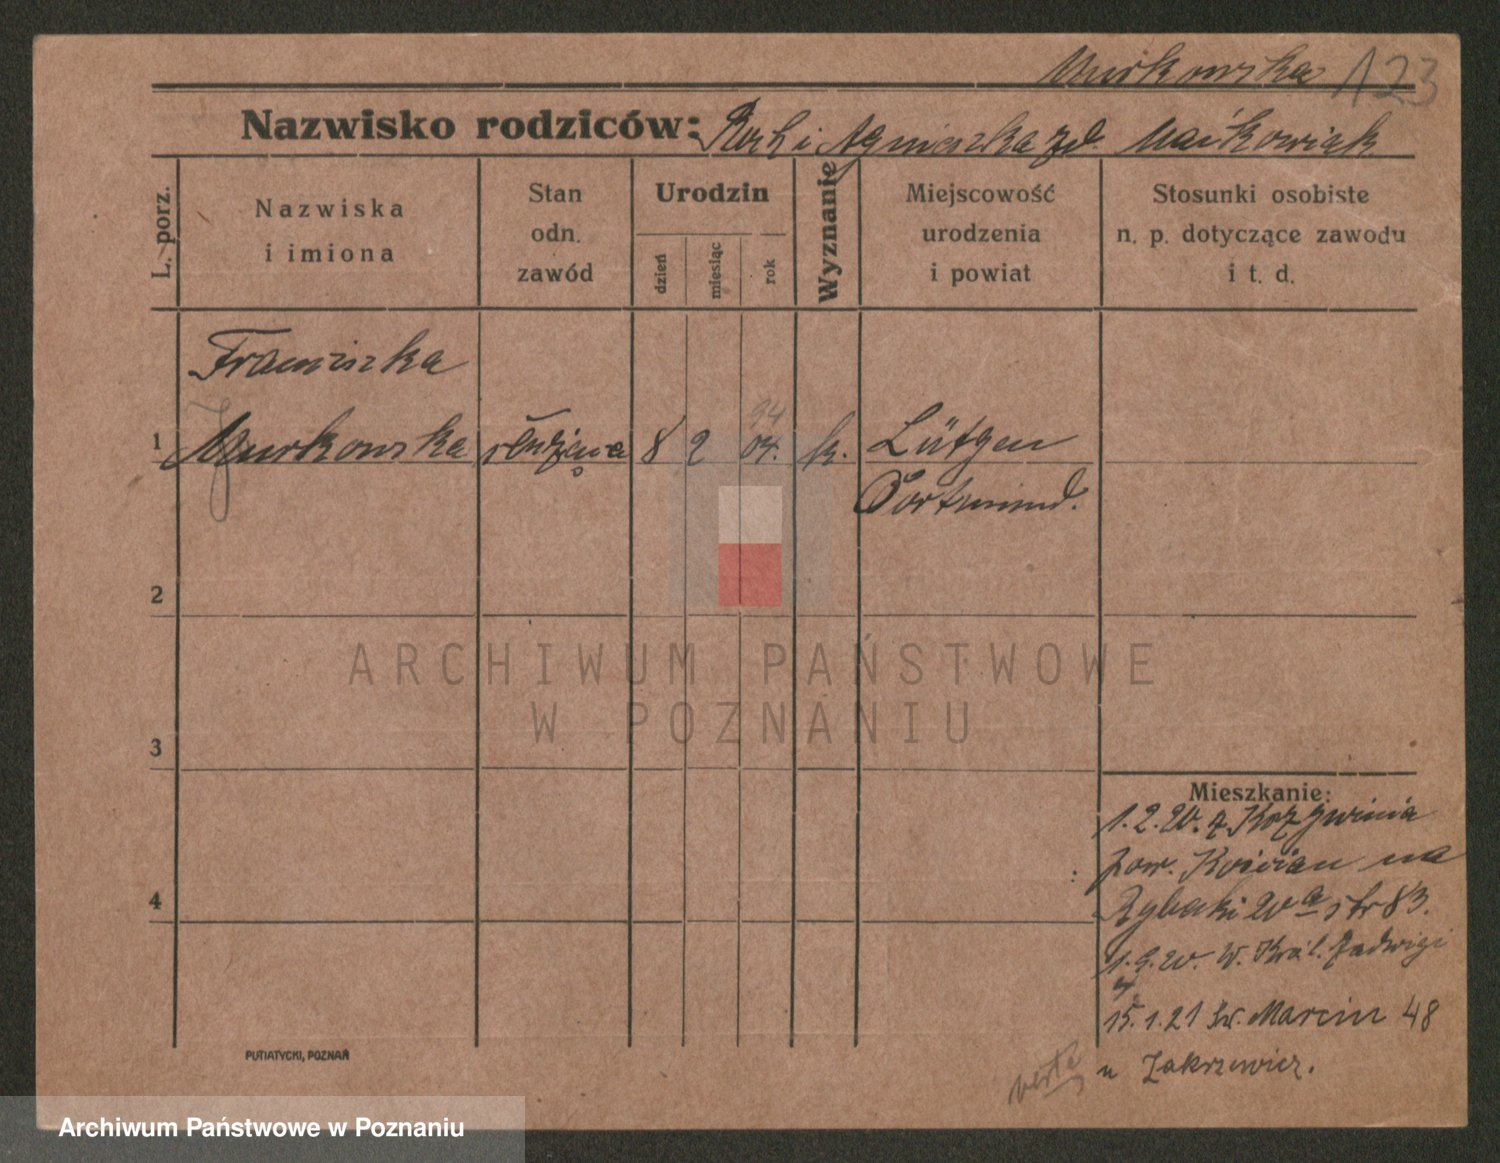 Murkowska 123
Nazwisko rodziców: Roch i Agnieszka zd. Maćkowiak
L. porz.
Nazwiska
i imiona
Stan
odn.
zawód
Urodzin
dzień
miesiąc
rok
Wyznanie
Miejscowość
urodzenia
i powiat
Stosunki osobiste
n. p. dotyczące zawodu
i t. d.
Franciszka
94
1 Murkowska służąca 8 2 04. k. Lütgen
Dortmund.
2
3
4
Mieszkanie:
1.2.20. z
pow. Kościan na
Rybaki 20a str 83.
1.9.20. W. Król. Jadwigi
4
15.1.21 Św. Marcin 48
u Zakrzewicz.
verte
PUTIATYCKI, POZNAŃ
ARCHIWUM PAŃSTWOWE
W POZNANIU
Archiwum Państwowe w Poznaniu